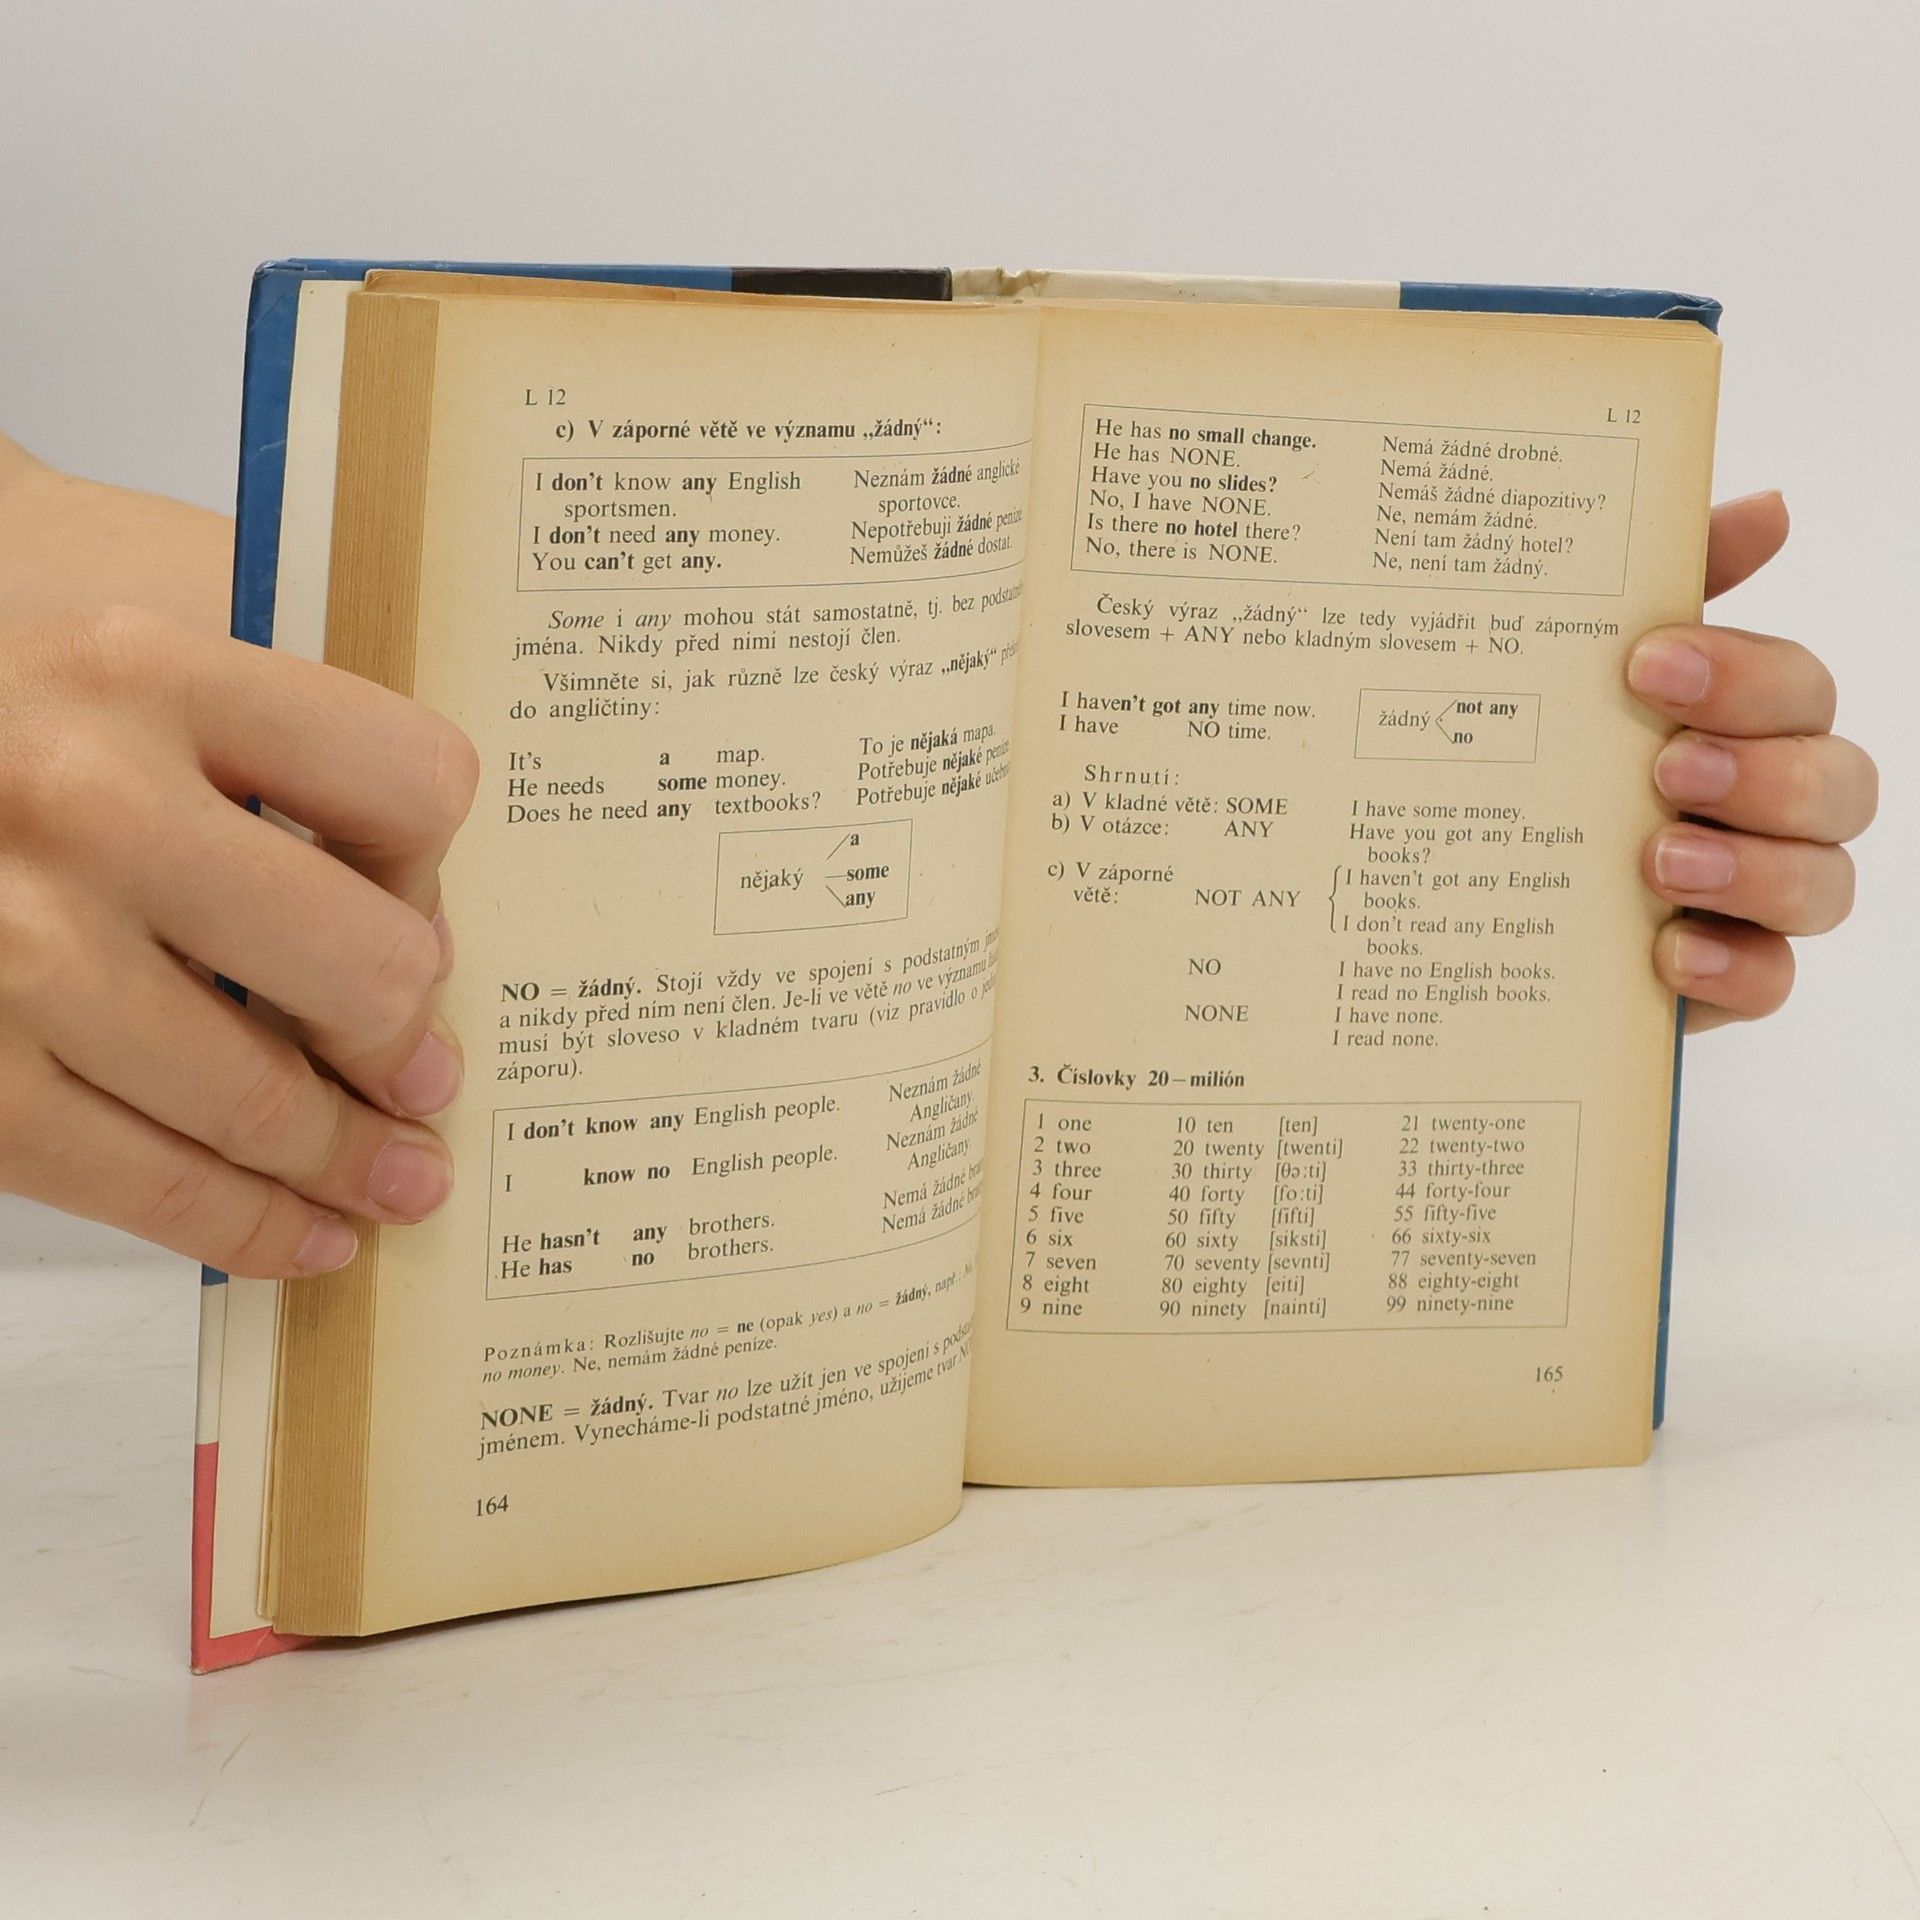 L 12
c) V záporné větě ve významu „žádný“:
I don't know any English Neznám žádné anglické
sportsmen. sportovce.
I don't need any money. Nepotřebuji žádné peníze
You can't get any. Nemůžeš žádné dostat.
Some i any mohou stát samostatně, tj. bez
jména. Nikdy před nimi nestojí člen.
Všimněte si, jak různě lze český výraz „nějaký“
do angličtiny:
It's a map. To je nějaká mapa.
He needs some money. Potřebuje nějaké peníze
Does he need any textbooks? Potřebuje nějaké
a
nějaký some
any
NO = žádný. Stojí vždy ve spojení s podstatným
a nikdy před ním není člen. Je-li ve větě no ve významu
musí být sloveso v kladném tvaru (viz pravidlo o
záporu).
I don't know any English people. Neznám žádné
Angličany.
I know no English people. Neznám žádné
Angličany.
He hasn't any brothers. Nemá žádné
He has no brothers. Nemá žádné
Poznámka: Rozlišujte no = ne (opak yes) a no = žádný, např.:
no money. Ne, nemám žádné peníze.
NONE = žádný. Tvar no lze užít jen ve spojení s
jménem. Vynecháme-li podstatné jméno, užijeme tvar
164
L 12
He has no small change. Nemá žádné drobné.
He has NONE. Nemá žádné.
Have you no slides? Nemáš žádné diapozitivy?
No, I have NONE. Ne, nemám žádné.
Is there no hotel there? Není tam žádný hotel?
No, there is NONE. Ne, není tam žádný.
Český výraz „žádný“ lze tedy vyjádřit buď záporným
slovesem + ANY nebo kladným slovesem + NO.
I haven't got any time now.
I have NO time.
not any
žádný
no
Shrnutí:
a) V kladné větě: SOME I have some money.
b) V otázce: ANY Have you got any English
books?
c) V záporné I haven't got any English
větě: NOT ANY books.
I don't read any English
books.
NO I have no English books.
I read no English books.
NONE I have none.
I read none.
3. Číslovky 20–milión
1 one 10 ten [ten] 21 twenty-one
2 two 20 twenty [twenti] 22 twenty-two
3 three 30 thirty [θə:ti] 33 thirty-three
4 four 40 forty [fo:ti] 44 forty-four
5 five 50 fifty [fifti] 55 fifty-five
6 six 60 sixty [siksti] 66 sixty-six
7 seven 70 seventy [sevnti] 77 seventy-seven
8 eight 80 eighty [eiti] 88 eighty-eight
9 nine 90 ninety [nainti] 99 ninety-nine
165